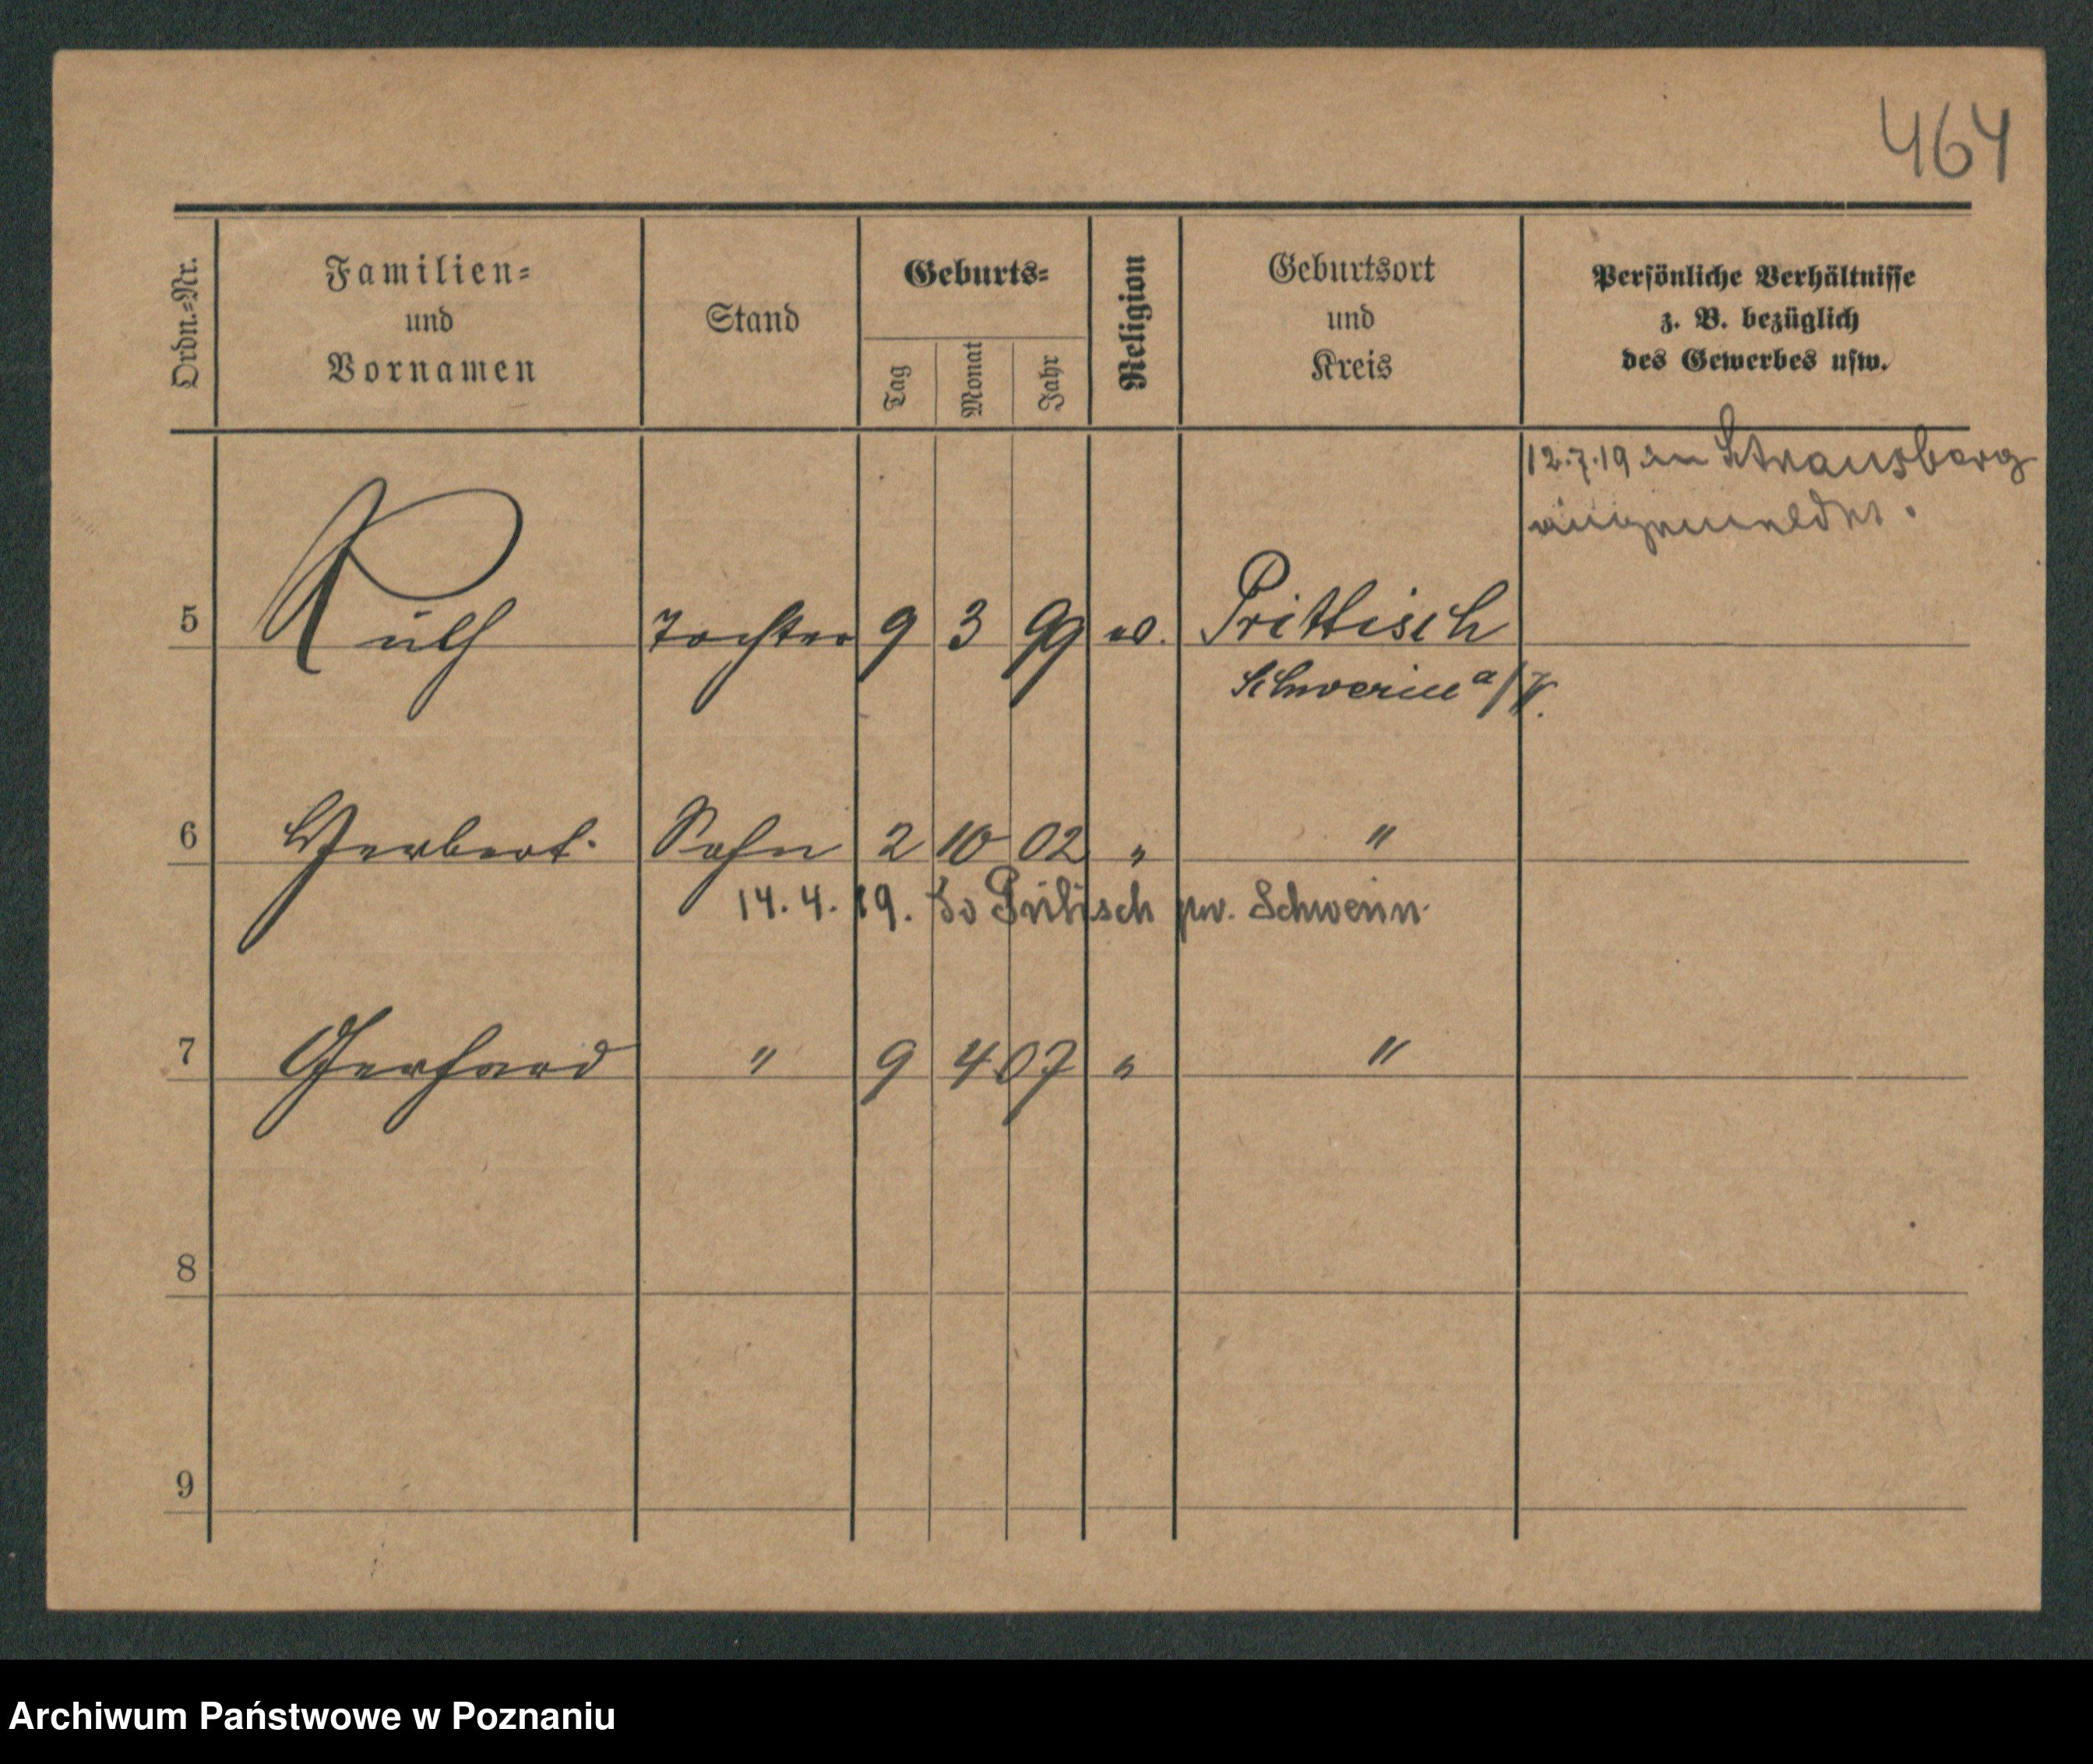 464
Ordn.=Nr.
Familien=
und
Vornamen
Stand
Geburts=
Tag
Monat
Jahr
Religion
Geburtsort
und
Kreis
Persönliche Verhältnisse
z. B. bezüglich
des Gewerbes usw.
12.7.19 in Strausberg
angemeldet.
5 Ruth Tochter 9 3 99 ev. Prittisch
Schwerin a/W.
6 Herbert. Sohn 2 10 02 " "
14.4.19. Pritisch Schwerin
7 Gerhard " 9 4 07 " "
8
9
Archiwum Państwowe w Poznaniu